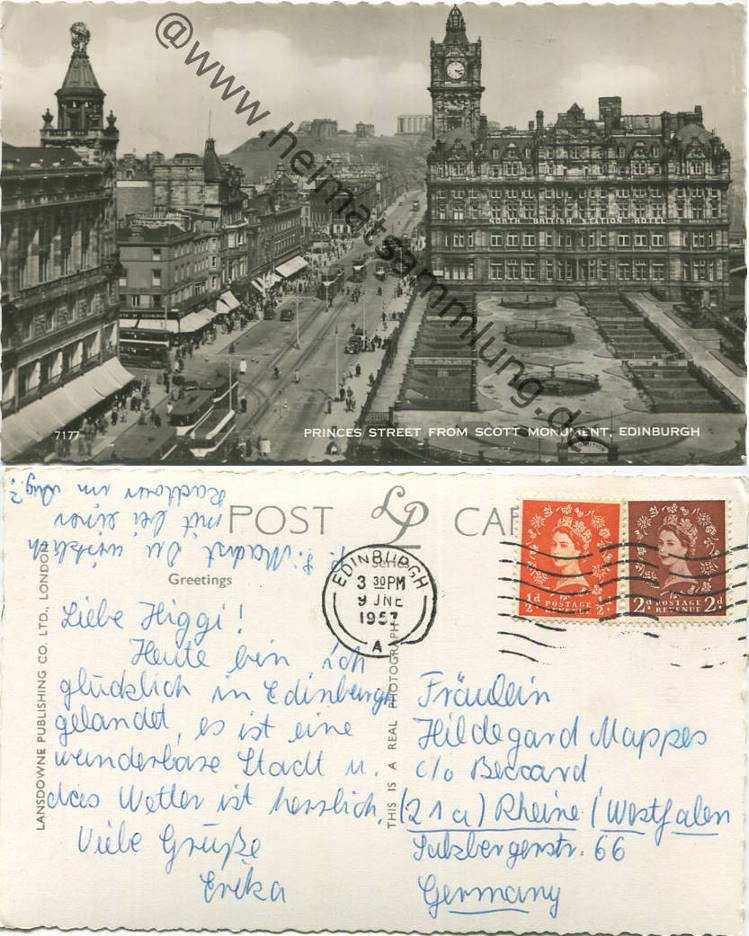 @www.heimatsammlung.de
NORTH BRITISH STATION HOTEL
7177
PRINCES STREET FROM SCOTT MONUMENT, EDINBURGH
POST LP CA
Series
Greetings
LANSDOWNE PUBLISHING CO. LTD., LONDON
THIS IS A REAL PHOTOGRAPH
EDINBURGH
3 30PM
9 JNE
1957
A
½d POSTAGE REVENUE ½d
2d POSTAGE REVENUE 2d
Machst Du wirklich
mit bei einer
Radtour im Aug.?
Liebe Higgi!
Heute bin ich
glücklich in Edinburgh
gelandet, es ist eine
wunderbare Stadt u.
das Wetter ist herrlich.
Viele Grüße
Erika
Fräulein
Hildegard Mappes
c/o Beccard
(21a) Rheine / Westfalen
Salzbergenstr. 66
Germany